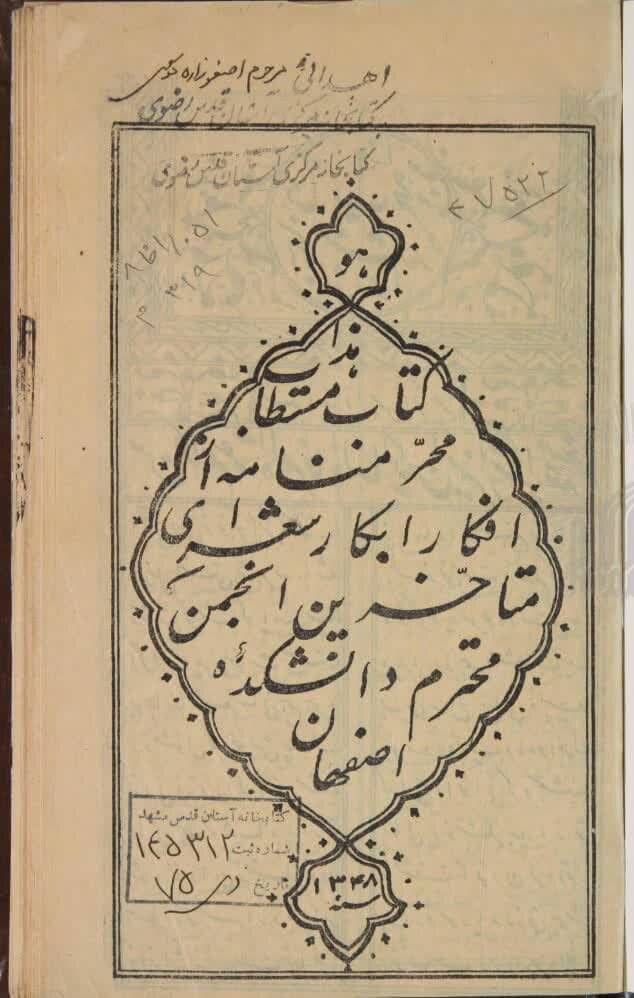 اهدائی مرحوم اصغرزاده
کتابخانه مرکزی آستان قدس رضوی
کتابخانه مرکزی آستان قدس رضوی
۵۲۲
۳۱۹
هو
هذا
کتاب مستطاب
محرّمنامه از
افکار ابکار شعرای
متاخّرین انجمن
محترم دانشکدهٔ
اصفهان
سنه ۱۳۴۸
کتابخانه آستان قدس مشهد
شماره ثبت ۱۴۵۳۱۲
تاریخ دی ۷۵